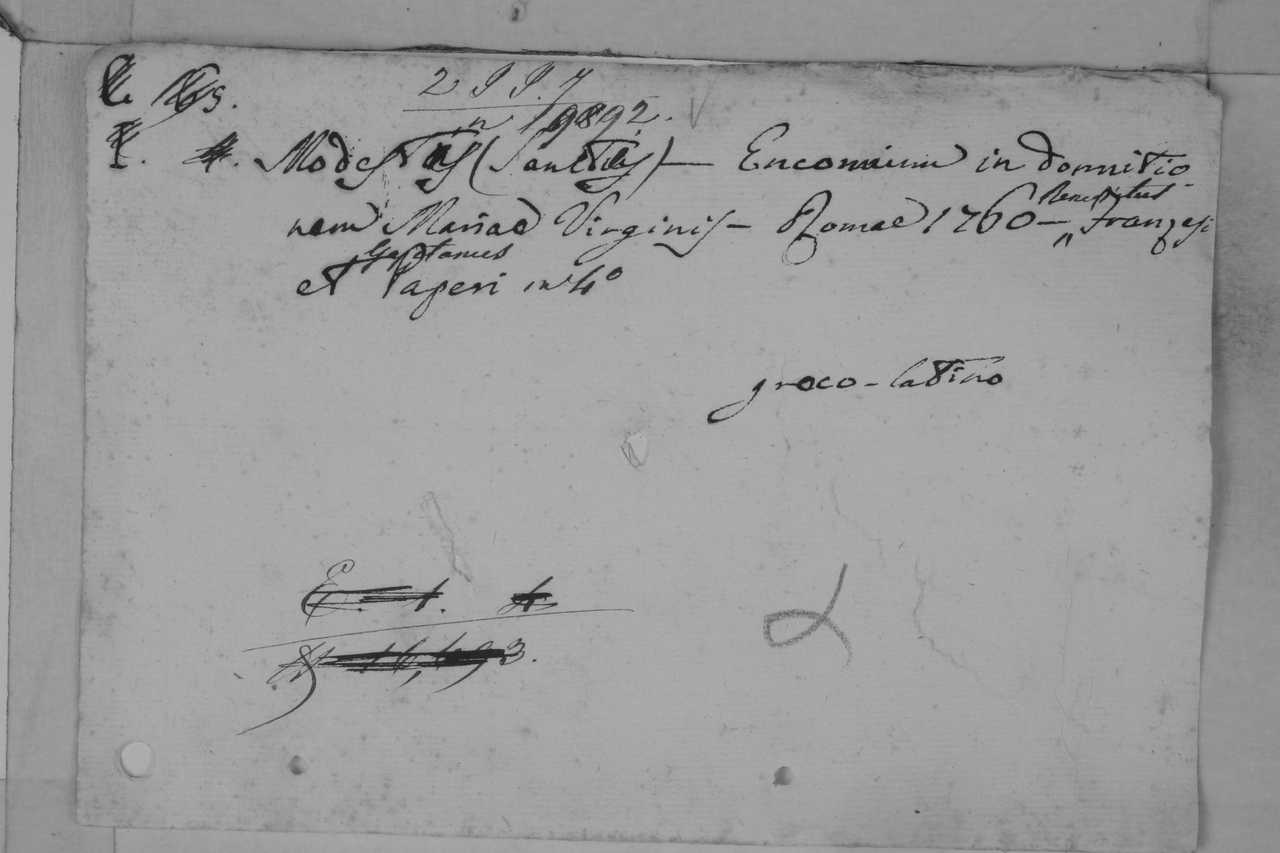 2 I I. 7
n 19892.
Modestus (Sanctus) — Encomium in dormitio
nem Mariae Virginis — Romae 1760 — Benedictus Franzesi
et Gaetanus Paperi in 4º
greco-latino